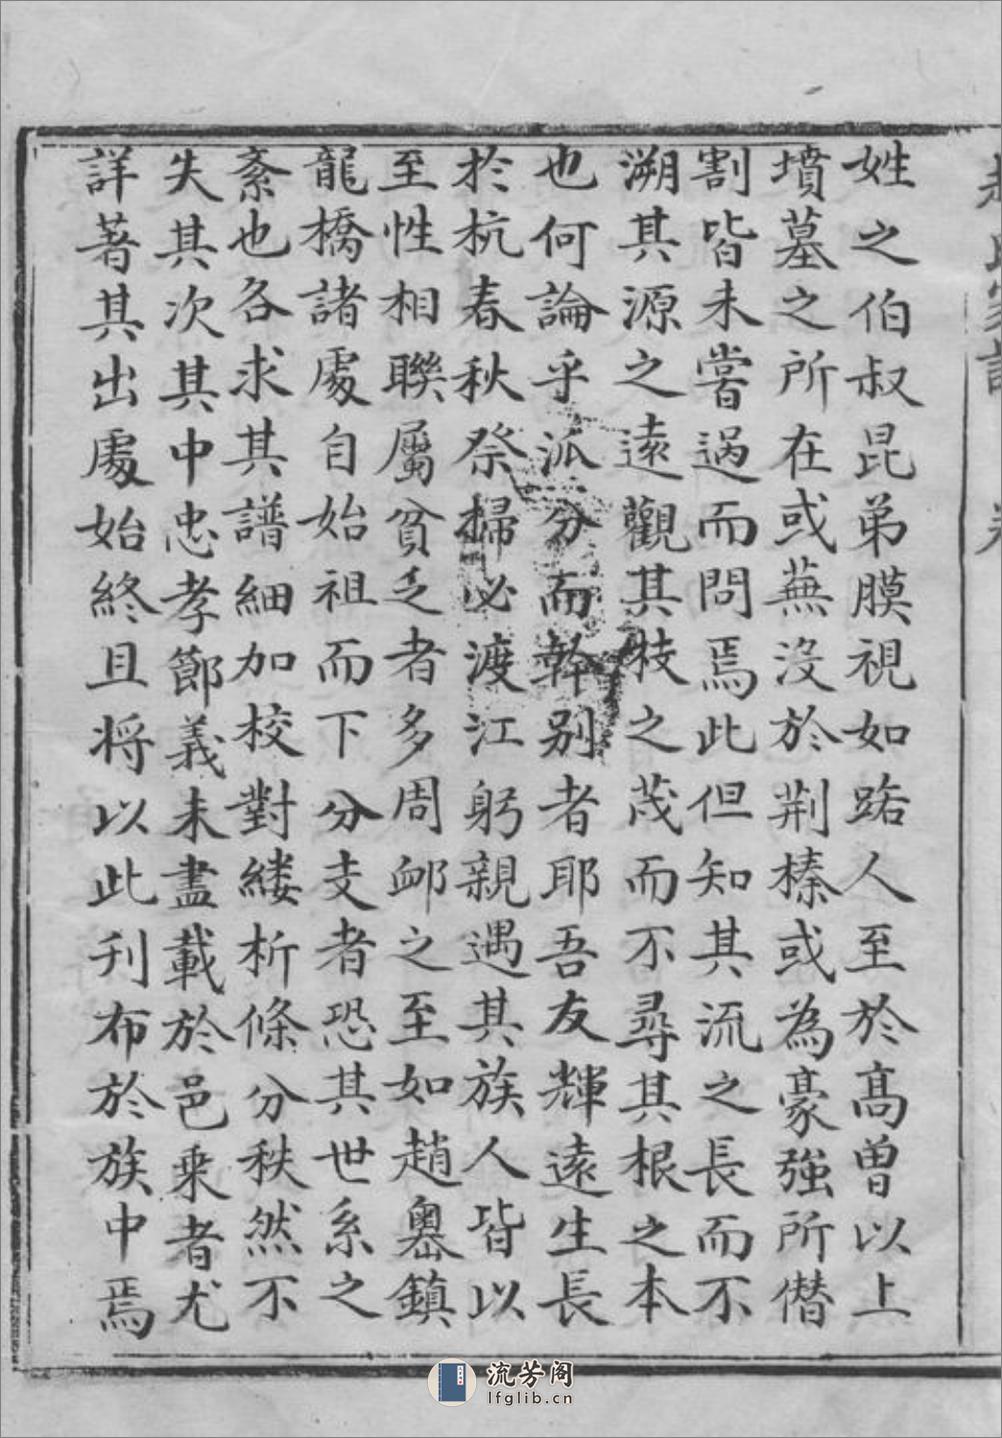 姓之伯叔昆弟膜視如路人至於高曾以上
墳墓之所在或蕪没於荆榛或為豪強所僭
割皆未嘗過而問焉此但知其流之長而不
溯其源之遠觀其枝之茂而不尋其根之本
也何論乎派分而幹别者耶吾友輝遠生長
於杭春秋祭掃必渡江躬親遇其族人皆以
至性相聯屬貧乏者多周衈之至如趙嶴鎮
龍橋諸處自始祖而下分支者恐其世系之
紊也各求其譜細加校對縷析條分秩然不
失其次其中忠孝節義未盡載於邑乘者尤
詳著其出處始終且将以此刊布於族中焉
流芳阁
lfglib.cn